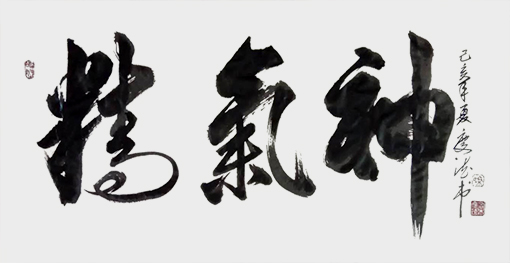 精氣神
己亥年夏